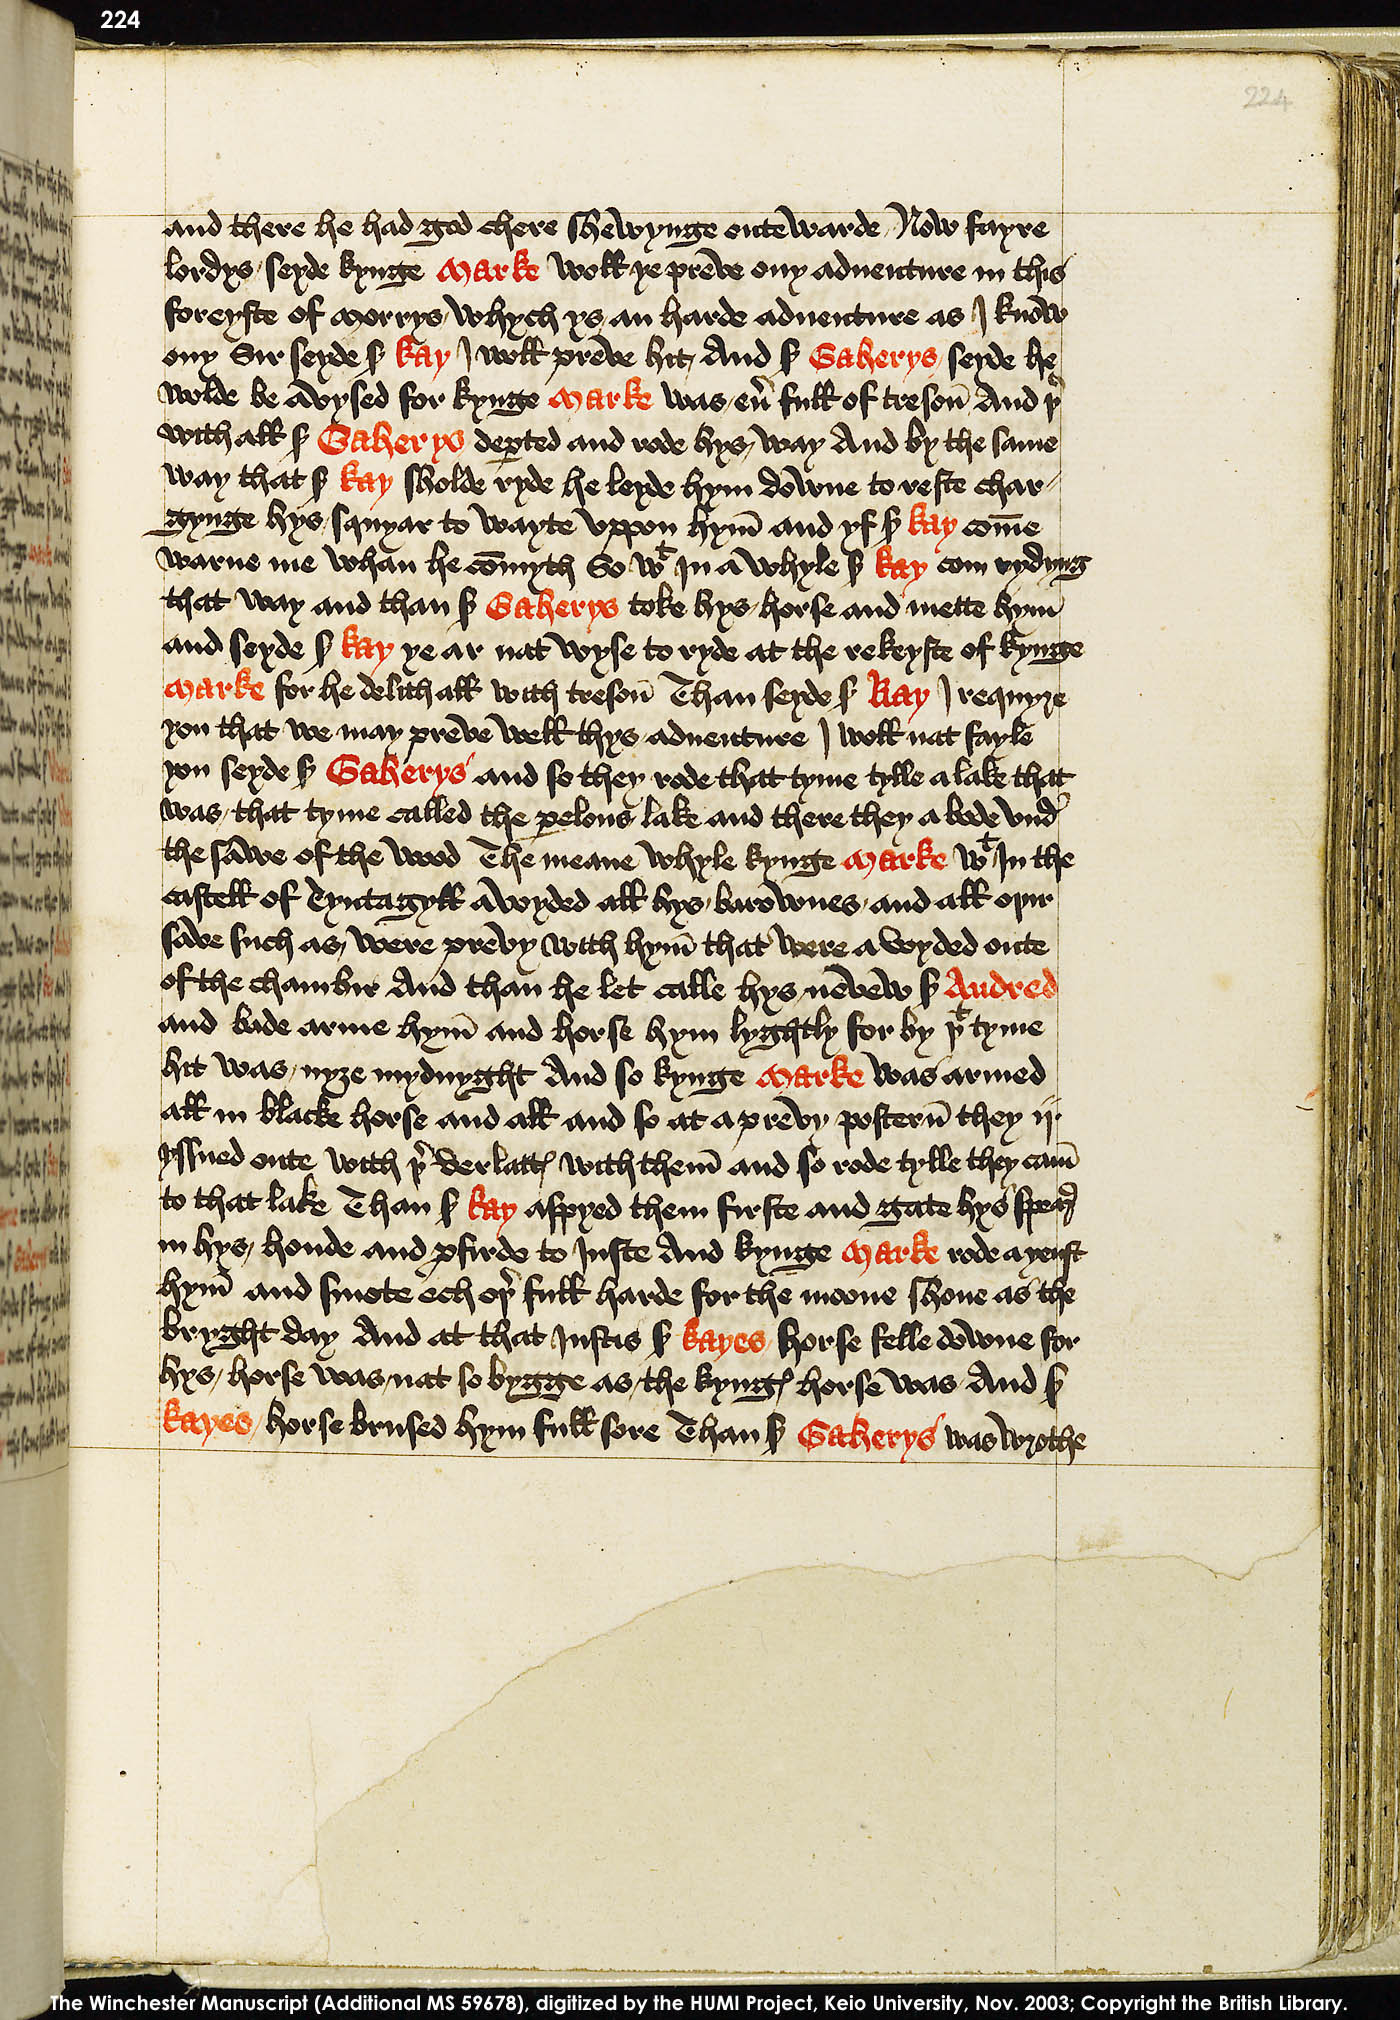 224
224
and there he had good chere shewynge outewarde Now fayre
lordys seyde kynge Marke woll ye preve ony adventure in this
foreyste of Morrys whych ys an harde adventure as I know
ony Sir seyde sʳ kay I woll preve hit And sʳ Gaherys seyde he
wolde be avysed for kynge Marke was eũ full of tresoñ And þʳ
with all sʳ Gaherys depted and rode hys way And by the same
way that sʳ kay sholde ryde he leyde hym downe to reste char
gynge hys squyar to wayte uppon hym̃ and yf sʳ kay com̃e
warne me whan he cõmyth So wᵗ In a whyle sʳ kay com rydyng
that way and than sʳ Gaherys toke hys horse and mette hym̃
and seyde sʳ kay ye ar nat wyse to ryde at the rekeyste of kynge
Marke for he delith all with tresoñ Than seyde sʳ Kay I requyre
you that we may preve well thys adventure I woll nat fayle
you seyde sʳ Gaherys and so they rode that tyme tylle a lake that
was that tyme called the pelous lake and there they a bode vndʳ
the sawe of the wood The meane whyle kynge Marke wᵗ In the
castell of Tyntagyll avoyded all hys barownes and all opir
save such as were prevy with hym̃ that were a voyded oute
of the chambir And than he let calle hys nevew sʳ Andred
and bade arme hym̃ and horse hym lyghtly for by þᵗ tyme
hit was nyze mydnyght And so kynge Marke was armed
all in blacke horse and all and so at a prevy posterñ they ij
yssued oute with þʳ verlattꝭ with them̃ and so rode tylle they cam̃
to that lake Than sʳ kay aspyed them firste and gate hys speʳ
in hys honde and pfirde to Juste And kynge Marke rode ayenst
hym̃ and smote ech opʳ full harde for the moone shone as the
bryght day And at that Justis sʳ kayes horse felle downe for
hys horse was nat so bygge as the kyngꝭ horse was And sʳ
kayes horse brused hym full sore Than sʳ Gaherys was wrothe
The Winchester Manuscript (Additional MS 59678), digitized by the HUMI Project, Keio University, Nov. 2003; Copyright the British Library.